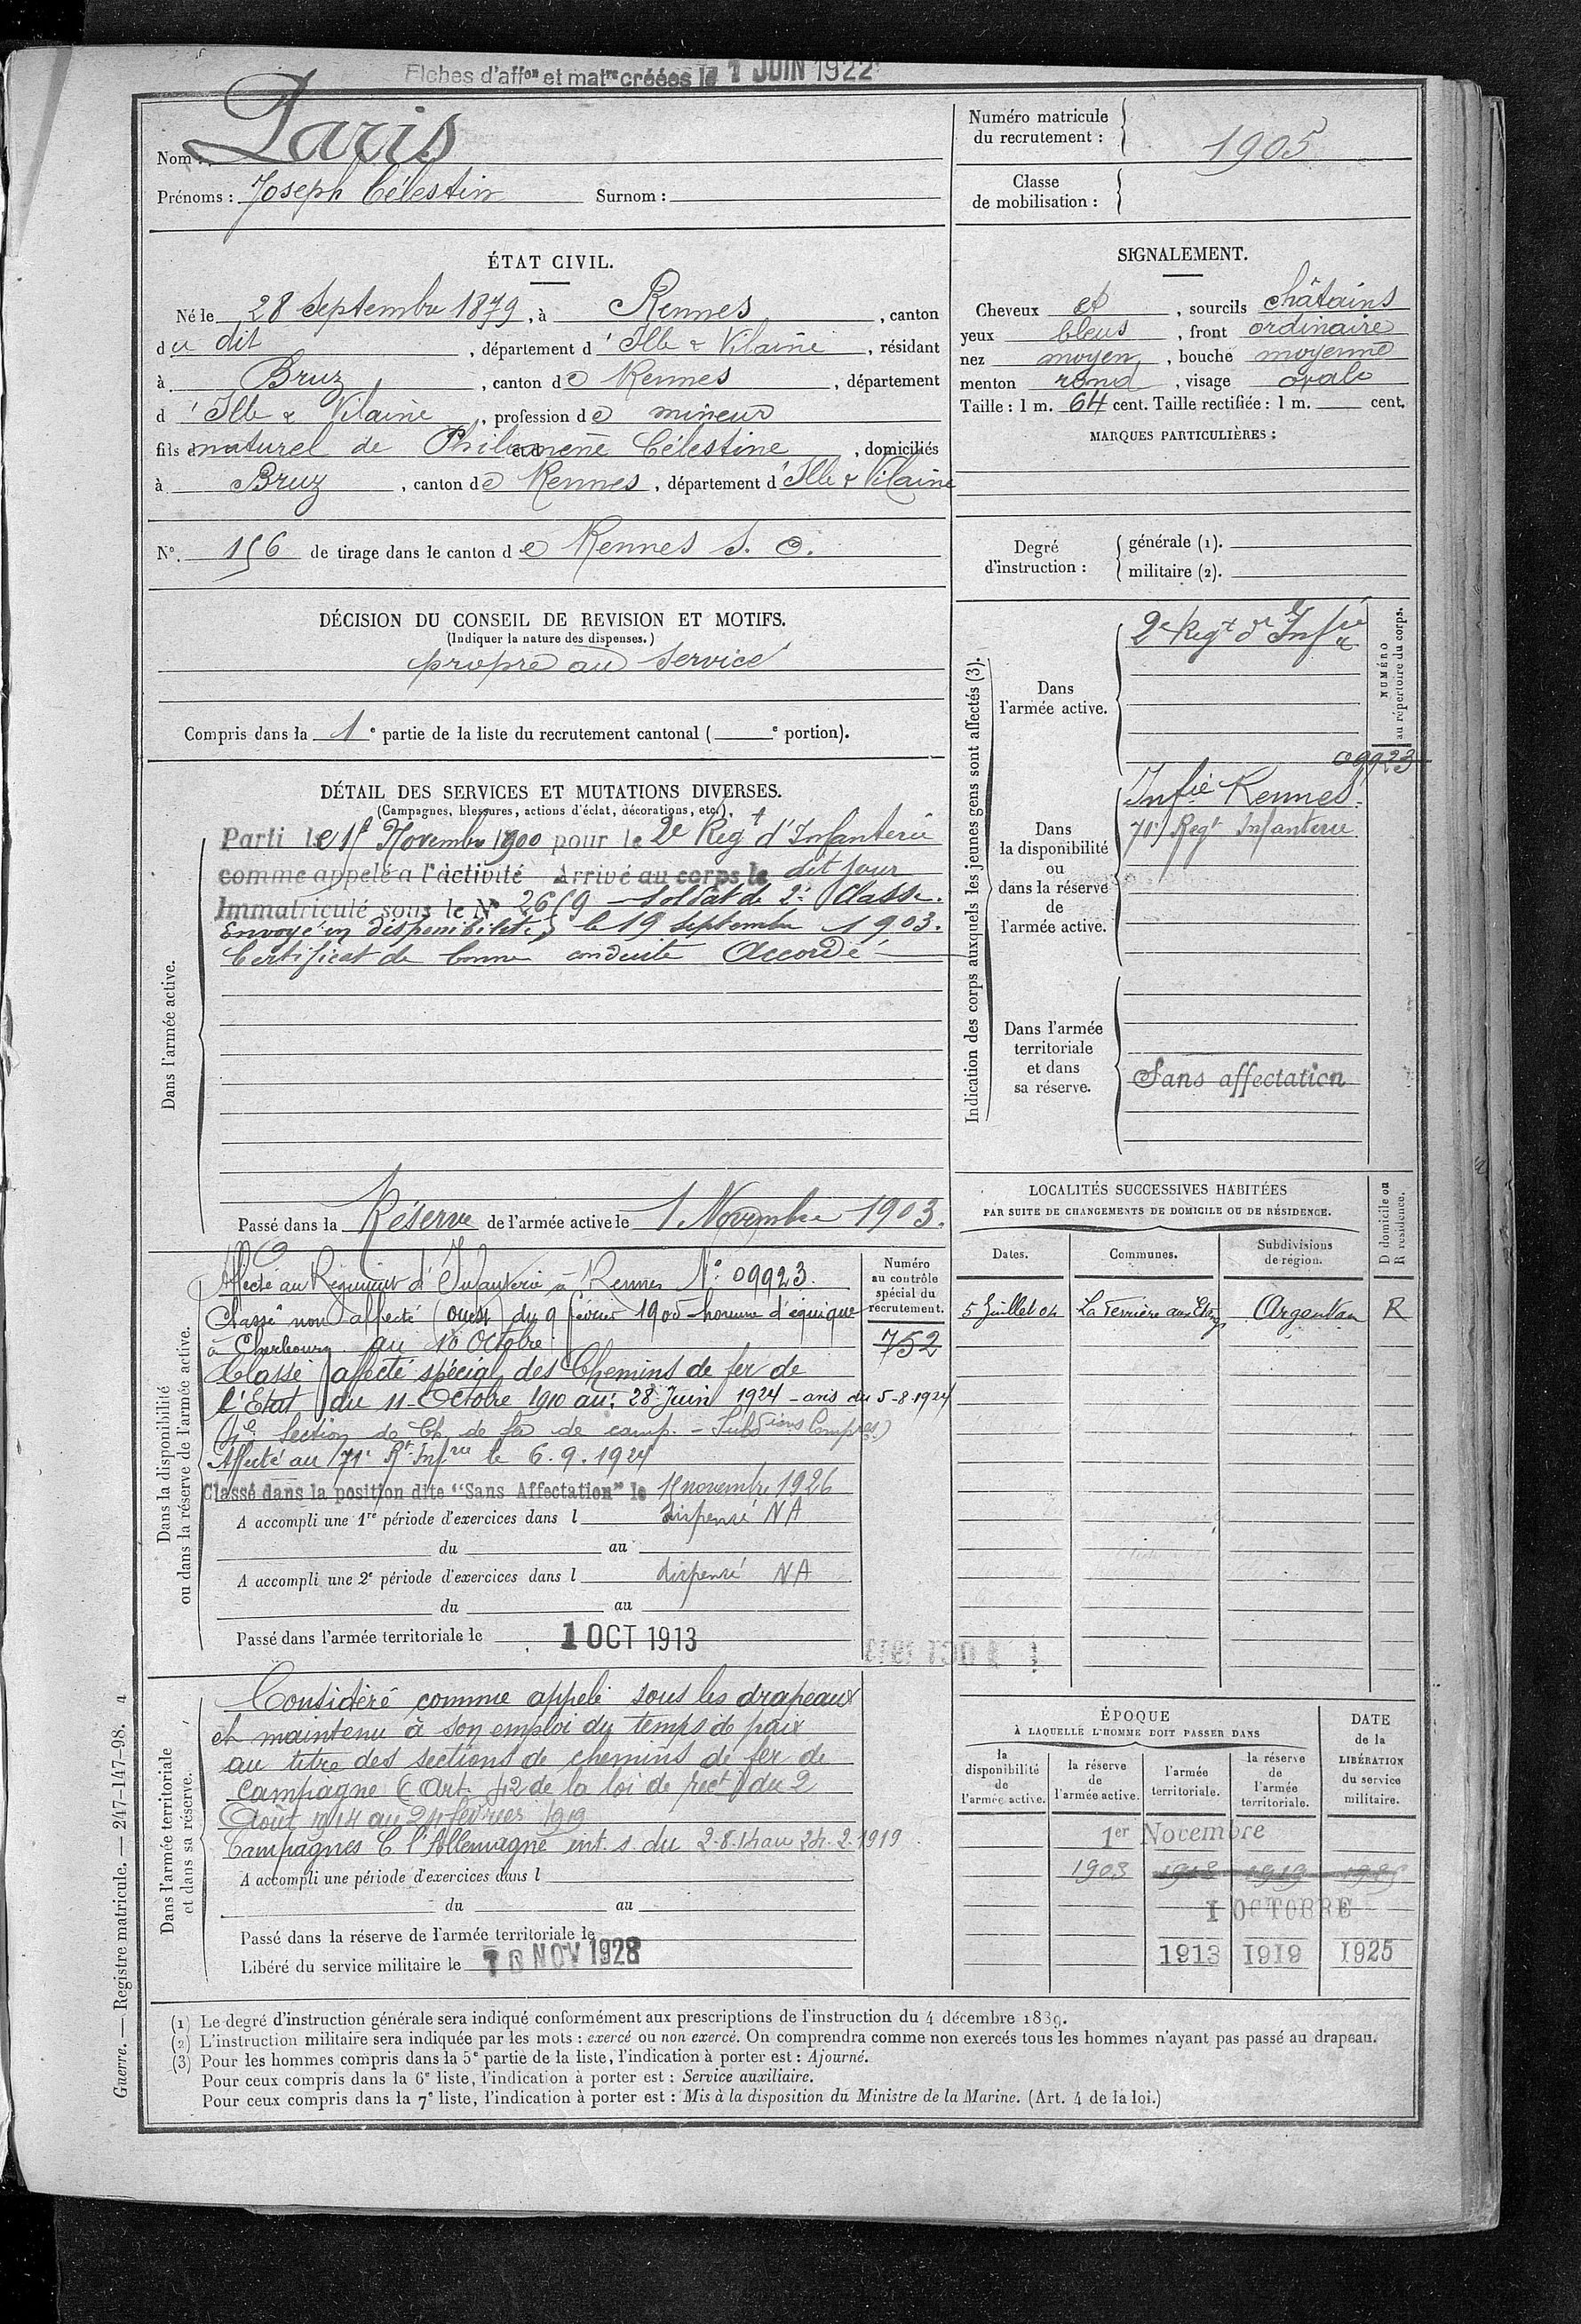 Fiches d'aff^on et mat^re créées le 1 JUIN 1922
Nom : Paris
Prénoms : Joseph Célestin Surnom :
Numéro matricule
du recrutement : 1905
Classe
de mobilisation :
ÉTAT CIVIL.
Né le 28 Septembre 1879, à Rennes, canton
du dit, département d'Ille & Vilaine, résidant
à Bruz, canton de Rennes, département
d'Ille & Vilaine, profession de mineur
fils naturel de Philomène Célestine, domiciliés
à Bruz, canton de Rennes, département d'Ille & Vilaine
N° 156 de tirage dans le canton de Rennes S. O.
SIGNALEMENT.
Cheveux et, sourcils châtains
yeux bleus, front ordinaire
nez moyen, bouche moyenne
menton rond, visage ovale
Taille : 1 m. 64 cent. Taille rectifiée : 1 m. cent.
MARQUES PARTICULIÈRES :
Degré
d'instruction :
générale (1).
militaire (2).
DÉCISION DU CONSEIL DE REVISION ET MOTIFS.
(Indiquer la nature des dispenses.)
propre au service
Compris dans la 1e partie de la liste du recrutement cantonal ( e portion).
DÉTAIL DES SERVICES ET MUTATIONS DIVERSES.
(Campagnes, blessures, actions d'éclat, décorations, etc.)
Dans l'armée active.
Parti le 15 Novembre 1900 pour le 2e Regt d'Infanterie
comme appelé à l'activité Arrivé au corps le dit jour
Immatriculé sous le N° 2659 - Soldat de 2e Classe.
Envoyé en disponibilité le 19 Septembre 1903.
Certificat de bonne conduite Accordé
Passé dans la Réserve de l'armée active le 1 Novembre 1903.
Indication des corps auxquels les jeunes gens sont affectés (3).
NUMÉRO
au répertoire du corps.
Dans
l'armée active.
2e Regt d'Infie
09923
Dans
la disponibilité
ou
dans la réserve
de
l'armée active.
Infie Rennes.
71e Regt Infanterie
Dans l'armée
territoriale
et dans
sa réserve.
Sans affectation
Dans la disponibilité
ou dans la réserve de l'armée active.
Affecté au Régiment d'Infanterie à Rennes N° 09923.
Classé non affecté (ouest) du 9 février 1905 homme d'équipe
à Cherbourg au 10 Octobre
Classé affecté spécial des Chemins de fer de
l'Etat du 11 Octobre 1910 au 28 Juin 1924 - avis du 5-8-1924
Section de Ch. de fer de camp. -
Affecté au 71e Rt Infrie le 6.9.1924
Classé dans la position dite "Sans Affectation" le 15 novembre 1926
A accompli une 1re période d'exercices dans l dispensé NA
du au
A accompli une 2e période d'exercices dans l dispensé NA
du au
Passé dans l'armée territoriale le 1 OCT 1913
Numéro
au contrôle
spécial du
recrutement.
752
LOCALITÉS SUCCESSIVES HABITÉES
PAR SUITE DE CHANGEMENTS DE DOMICILE OU DE RÉSIDENCE.
D domicile ou
R résidence.
Dates. Communes. Subdivisions
de région.
5 Juillet 04 La Ferrière aux Etangs Argentan R
Dans l'armée territoriale
et dans sa réserve.
Considéré comme appelé sous les drapeaux
et maintenu à son emploi du temps de paix
au titre des sections de chemins de fer de
campagne (Art. 42 de la loi de rect) du 2
Août 1914 au 24 février 1919
Campagnes C. l'Allemagne int. s. du 2-8-14 au 24-2-1919
A accompli une période d'exercices dans l
du au
Passé dans la réserve de l'armée territoriale le
Libéré du service militaire le 10 NOV 1928
ÉPOQUE
À LAQUELLE L'HOMME DOIT PASSER DANS
la
disponibilité
de
l'armée active.
la réserve
de
l'armée active.
l'armée
territoriale.
la réserve
de
l'armée
territoriale.
DATE
de la
LIBÉRATION
du service
militaire.
1er Novembre
1903 1913 1919 1925
1 OCTOBRE
1913 1919 1925
(1) Le degré d'instruction générale sera indiqué conformément aux prescriptions de l'instruction du 4 décembre 1889.
(2) L'instruction militaire sera indiquée par les mots : exercé ou non exercé. On comprendra comme non exercés tous les hommes n'ayant pas passé au drapeau.
(3) Pour les hommes compris dans la 5e partie de la liste, l'indication à porter est : Ajourné.
Pour ceux compris dans la 6e liste, l'indication à porter est : Service auxiliaire.
Pour ceux compris dans la 7e liste, l'indication à porter est : Mis à la disposition du Ministre de la Marine. (Art. 4 de la loi.)
Guerre. — Registre matricule. — 247-147-98. a